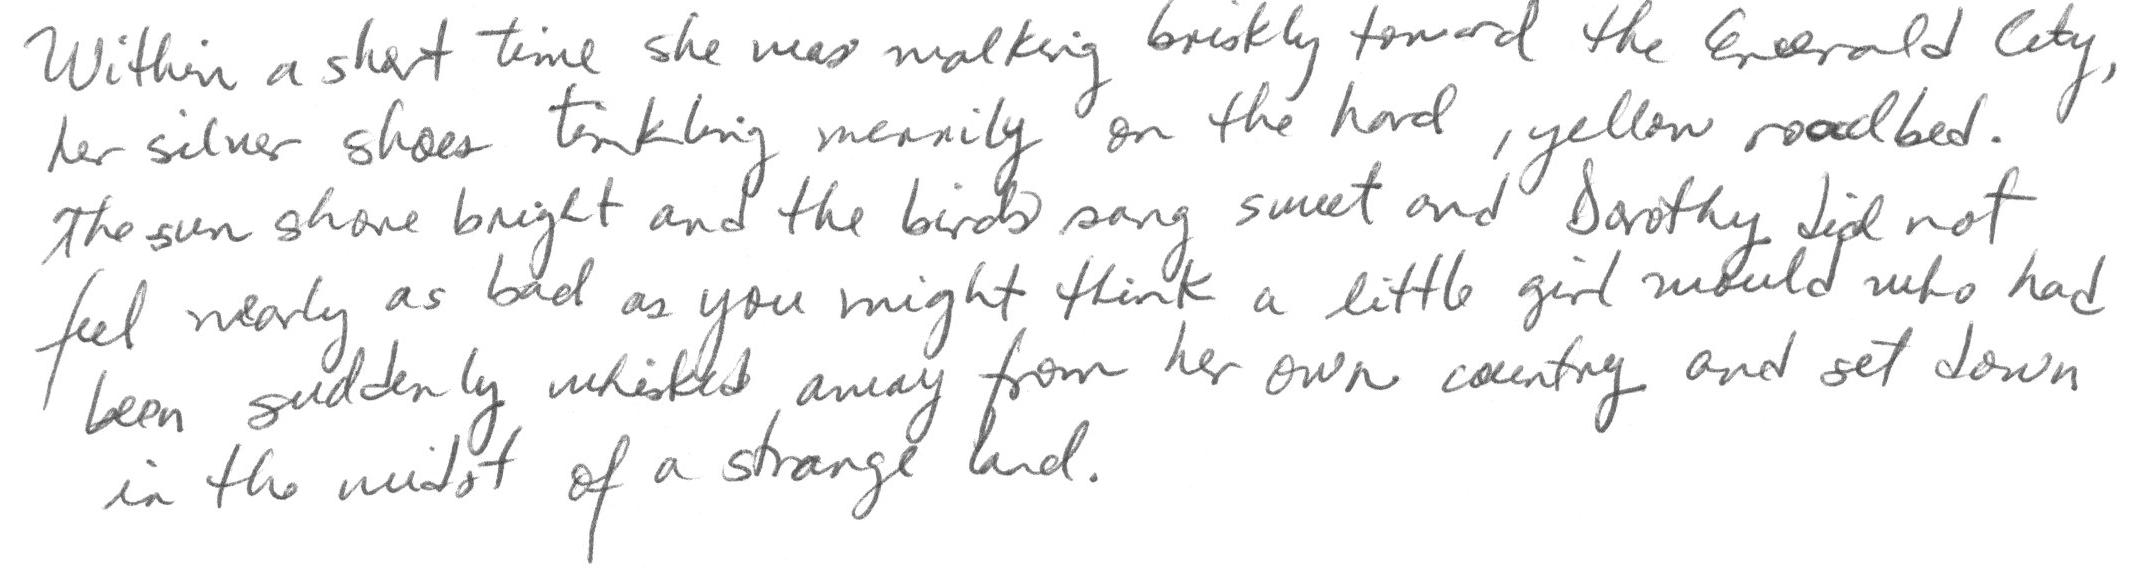 Within a short time she was walking briskly toward the Emerald City,
her silver shoes tinkling merrily on the hard, yellow roadbed.
The sun shone bright and the birds sang sweet and Dorothy did not
feel nearly as bad as you might think a little girl would who had
been suddenly whisked away from her own country and set down
in the midst of a strange land.